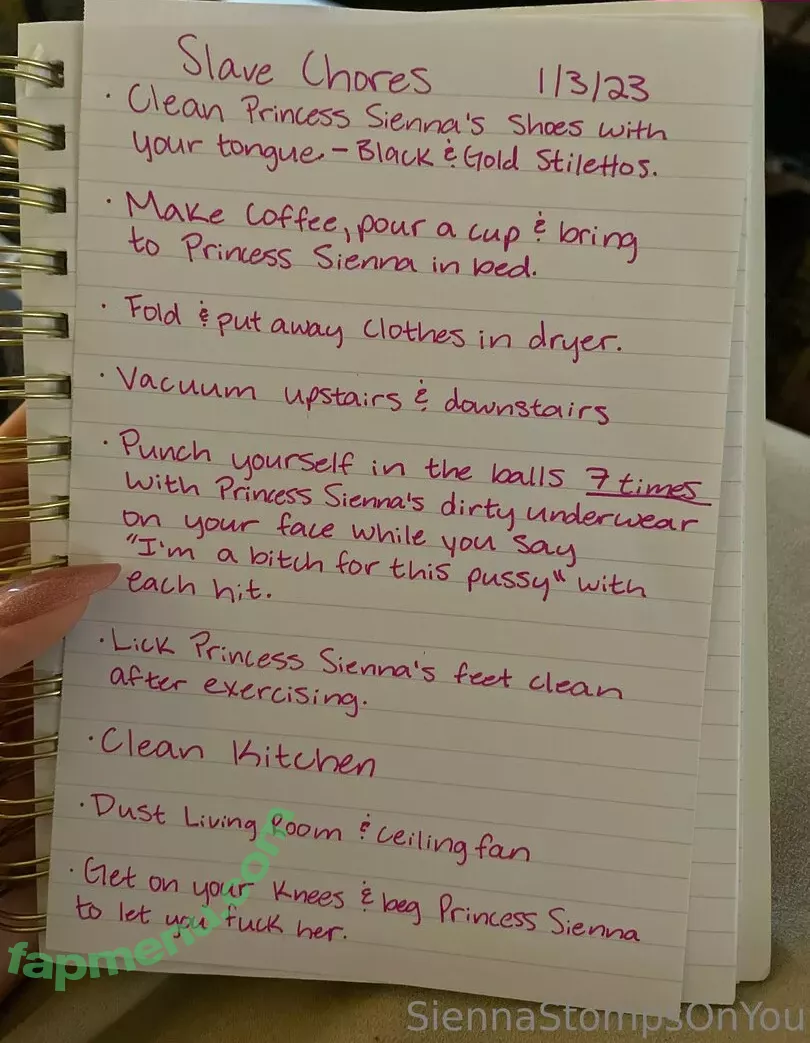 Slave Chores 1/3/23
· Clean Princess Sienna's Shoes with
your tongue. - Black & Gold Stilettos.
· Make Coffee, pour a cup & bring
to Princess Sienna in bed.
· Fold & put away clothes in dryer.
· Vacuum upstairs & downstairs
· Punch yourself in the balls 7 times
with Princess Sienna's dirty underwear
on your face while you say
"I'm a bitch for this pussy" with
each hit.
· Lick Princess Sienna's feet clean
after exercising.
· Clean Kitchen
· Dust Living Room & ceiling fan
· Get on your Knees & beg Princess Sienna
to let you fuck her.
fapmenu.com
SiennaStompsOnYou